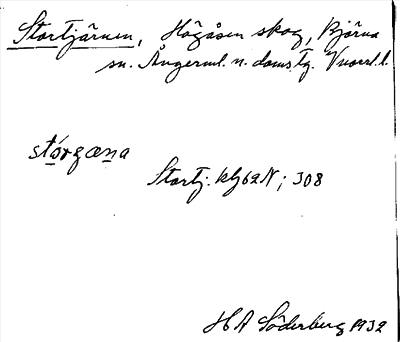 Stortjärnen, Högåsen skog, Björna
sn. Ångerml. n. doms. tg. Vnorrl. l.
stórgæna
Stortj. kbg62N; 308
H A Söderberg 1932